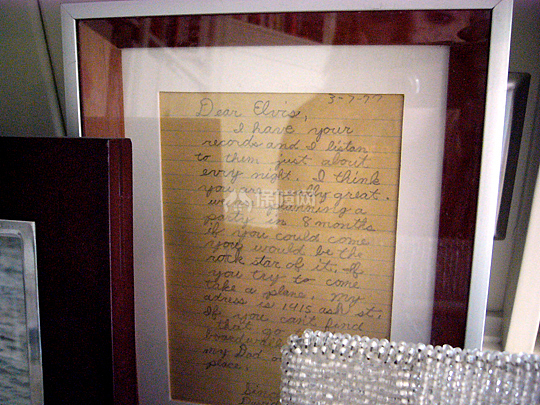 3-7-77
Dear Elvise,
I have your
records and I listan
to them just about
evry night. I think
you are really great.
we're planning a
party in 8 months
if you could come
you would be the
rock star of it. If
you try to come
take a plane. My
adress is 1415 ash st.
If you can't find
that go
boardwalk
my Dad
place.